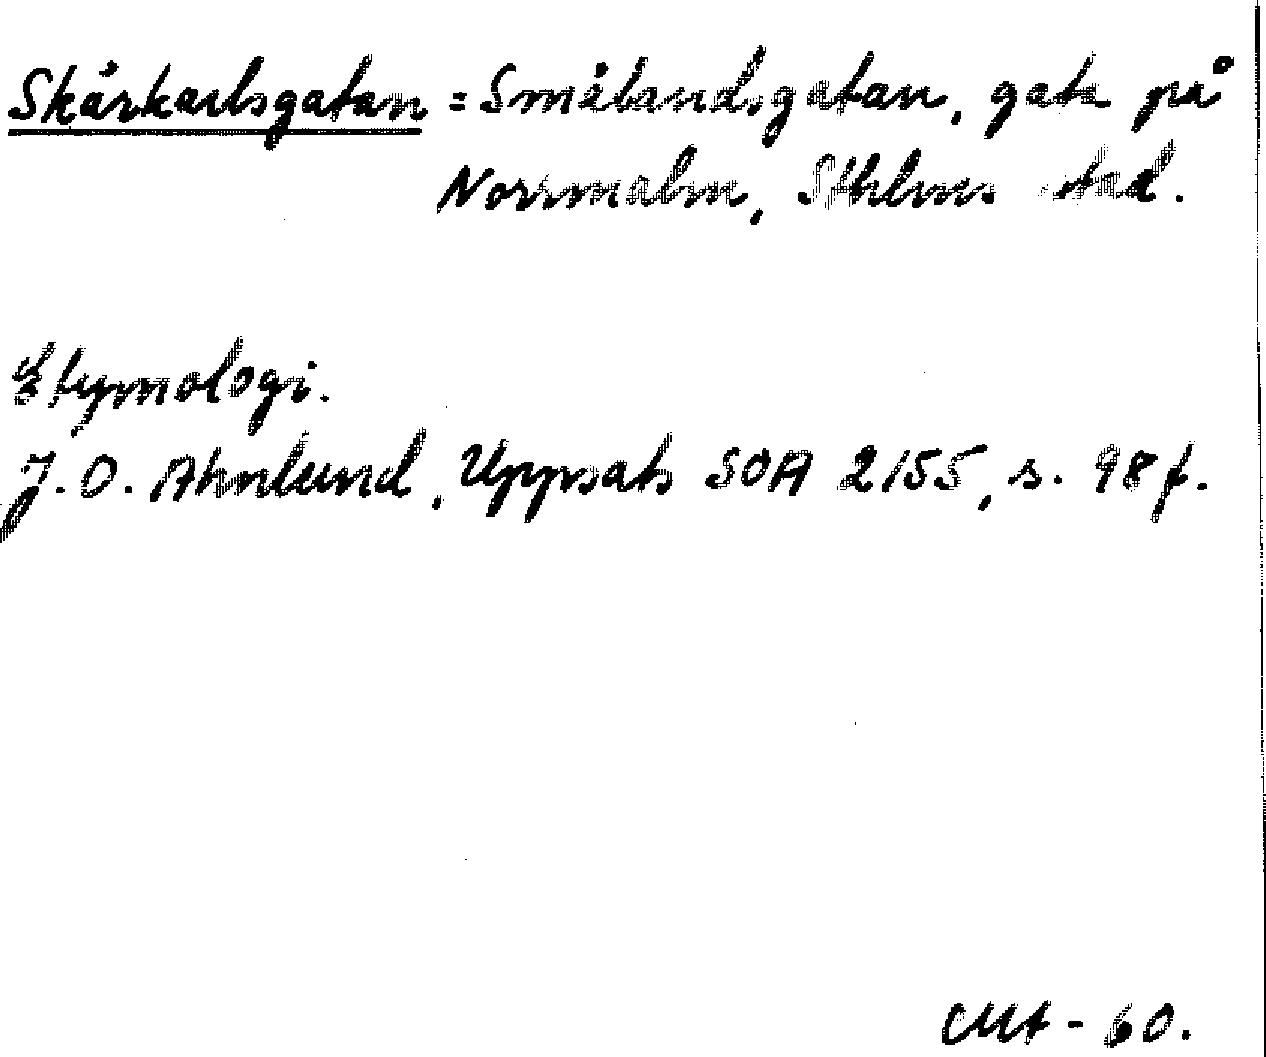 Skårkarlsgatan = Smålandsgatan, gata på
Norrmalm, Sthlms stad.
Etymologi.
J. O. Ahnlund, Uppsats SOA 2/55, s. 98 f.
- 60.